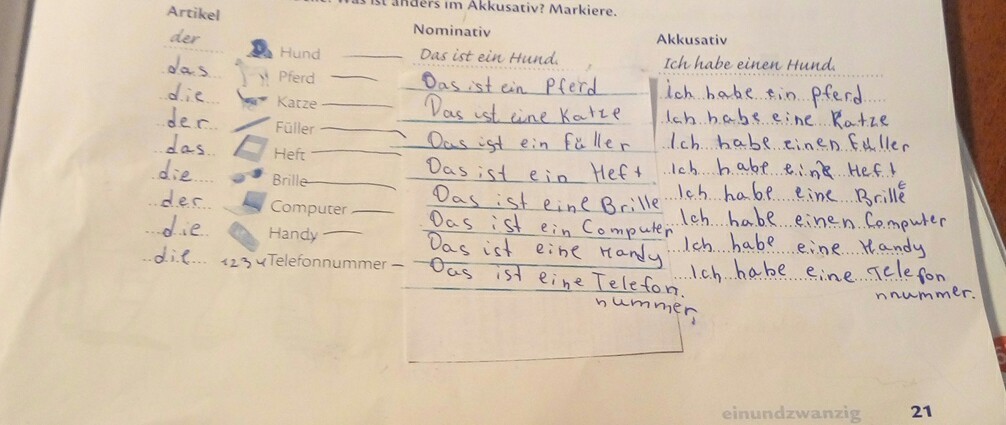 Was ist anders im Akkusativ? Markiere.
Artikel Nominativ Akkusativ
der Hund Das ist ein Hund. Ich habe einen Hund.
das Pferd Das ist ein Pferd ich habe ein Pferd
die Katze Das ist eine Katze Ich habe eine Katze
der Füller Das ist ein Füller Ich habe einen Füller
das Heft Das ist ein Heft Ich habe ein Heft
die Brille Das ist eine Brille Ich habe eine Brille
der Computer Das ist ein Computer Ich habe einen Computer
die Handy Das ist eine Handy Ich habe eine Handy
die 1234 Telefonnummer Das ist eine Telefon. Ich habe eine Telefon
nummer. nnummer.
einundzwanzig 21